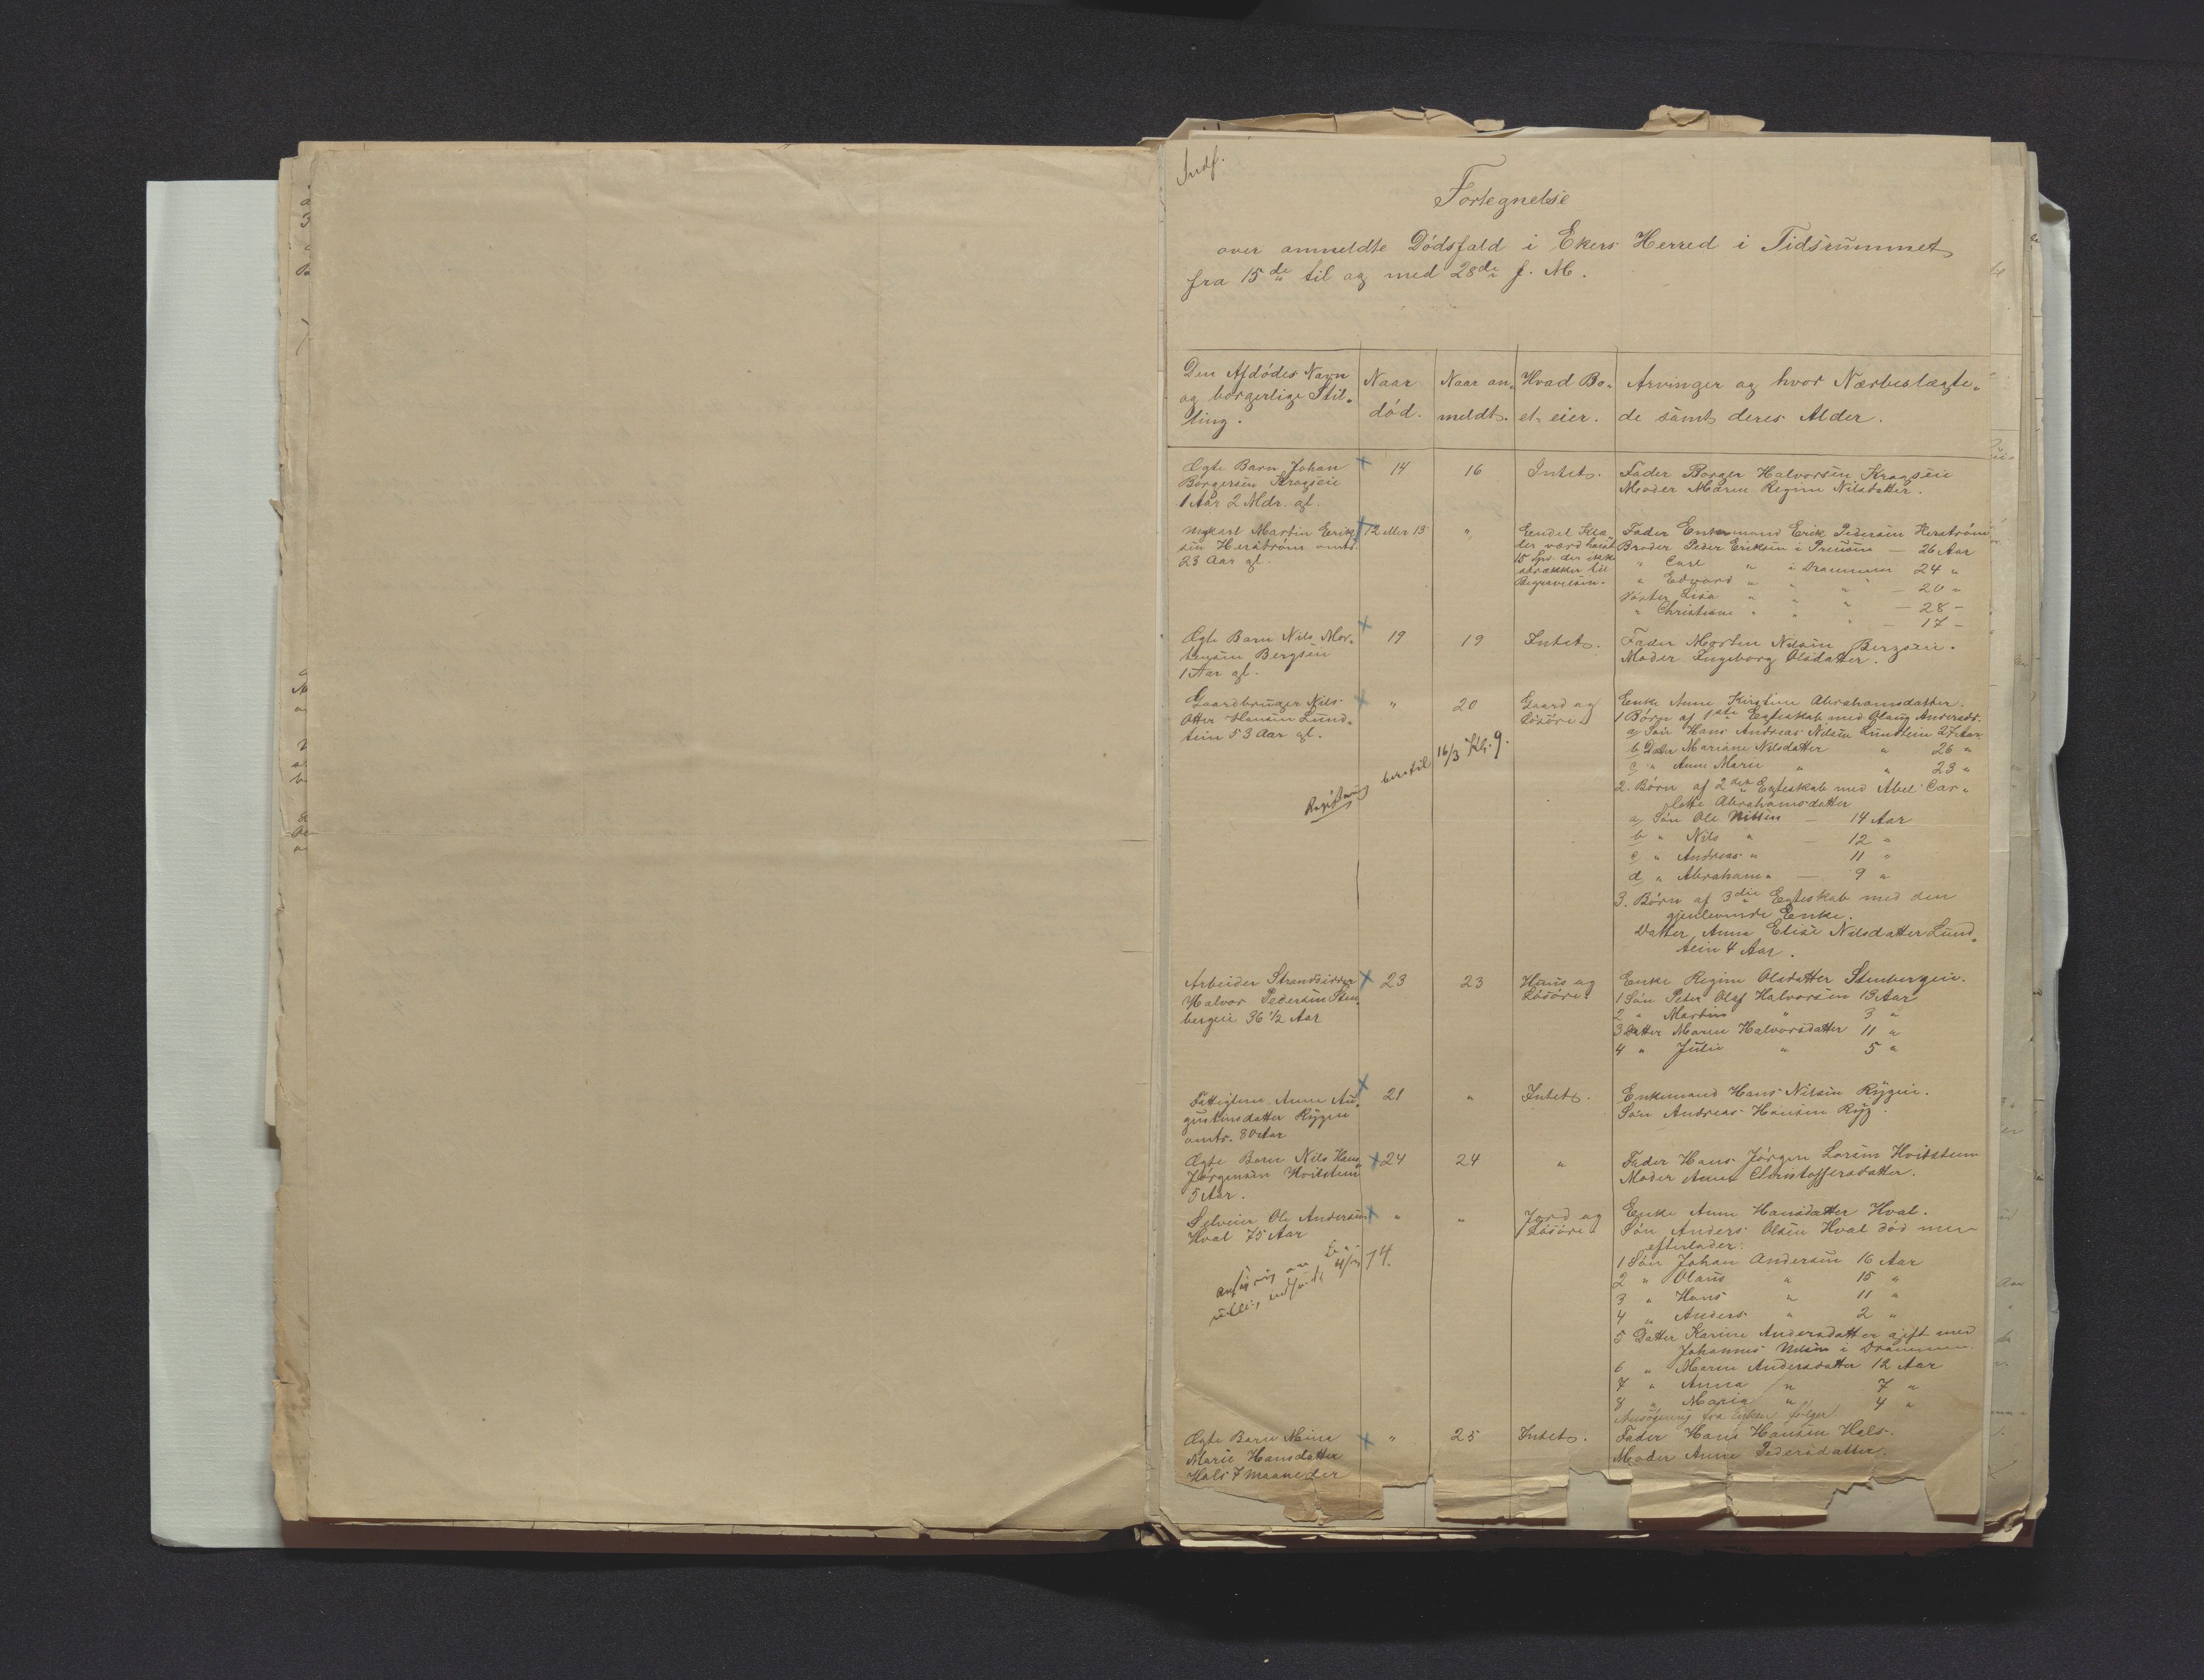 Indf.
Fortegnelse
over anmeldte Dødsfald i Ekers Herred i Tidsrummet
fra 15de til og med 28de f. M.
Den Afdødes Navn og borgerlige Stilling.
Naar død.
Naar anmeldt.
Hvad Boet eier.
Arvinger og hvor Nærbeslægtede samt deres Alder.
Ægte Barn Johan
Borgersen Kragseie
1 Aar 2 Mdr. gl.
14
16
Intet.
Fader Borger Halvorsen Kragseie
Moder Maren Regine Nilsdatter.
Ungkarl Martin Erik-
sen Herstrøm omtr.
23 Aar gl.
12 eller 13
"
Eendel Klæ-
der værd høist
15 Spd der ikke
strækker til
Begravelsen.
Fader Enkemand Erick Pedersen Herstrøm
Broder Peder Eriksen i — 26 Aar
" Carl " i Drammen 24 "
" Edvard " " " — 20 "
Søster Lisa " " " — 28 -
" Christiane " " " — 17 -
Ægte Barn Nils Mor-
tensen Bergseie
1 Aar gl.
19
19
Intet.
Fader Morten Nilsen Bergseie.
Moder Ingeborg Olsdatter.
Gaardbruger Nils
Otter Hansen Lund-
tein 53 Aar gl.
"
20
Gaard og
Løsøre
Registering berættil 16/3 Kl. 9.
Enke Anne Kirstine Abrahamsdatter.
1 Børn af 1ste Egteskab med Olaug Andersdr.
a Søn Hans Andreas Nilsen Lundtein 27 Aar
b Datter Mariane Nilsdatter " 26 "
c " Anne Marie " " 23 "
2. Børn af 2det Egteskab med Abel Car-
lotte Abrahamsdatter
a Søn Ole Nilsen — 14 Aar
b " Nils " — 12 "
c " Andreas " 11 "
d " Abraham " — 9 "
3. Børn af 3die Egteskab med den
gjenlevende Enke.
Datter Anna Elise Nilsdatter Lund-
tein 4 Aar.
Arbeider Strandsidder
Halvor Pedersen Sten-
bergeie 36 1/2 Aar
23
23
Huus og
Løsøre.
Enke Regine Olsdatter Stenbergeie.
1 Søn Peter Olaf Halvorsen 13 Aar
2 " Martin " 3 "
3 Datter Maren Halvorsdatter 11 "
4 " Julie " 5 "
Fattiglem Anne Au-
gustinusdatter Rygeie
omtr. 80 Aar
21
"
Intet.
Enkemand Hans Nilsen Rygeie.
Søn Andreas Hansen Ryg.
Ægte Barn Nils Hans
Jørgensen Hoitstein
5 Aar.
24
24
"
Fader Hans Jørgen Larsen Hoitstein
Moder Anne Christoffersdatter.
Selveier Ole Andersen
Hval 75 Aar
"
"
Jord og
Løsøre
74.
Enke Anne Hansdatter Hval.
Søn Anders Olsen Hval død men
efterlader:
1 Søn Johan Andersen 16 Aar
2 " Olaus " 15 "
3 " Hans " 11 "
4 " Anders " 2 "
5 Datter Karine Andersdatter gift med
Johannes Nilsen i Drammen.
6 " Maren Andersdatter 12 Aar
7 " Anna " 7 "
8 " Maria " 4 "
Ansøgning fra Enken følger
Ægte Barn Mina
Marie Hansdatter
Hals 7 Maaneder
"
25
Intet.
Fader Hans Hansen Hals.
Moder Anne Pedersdatter.